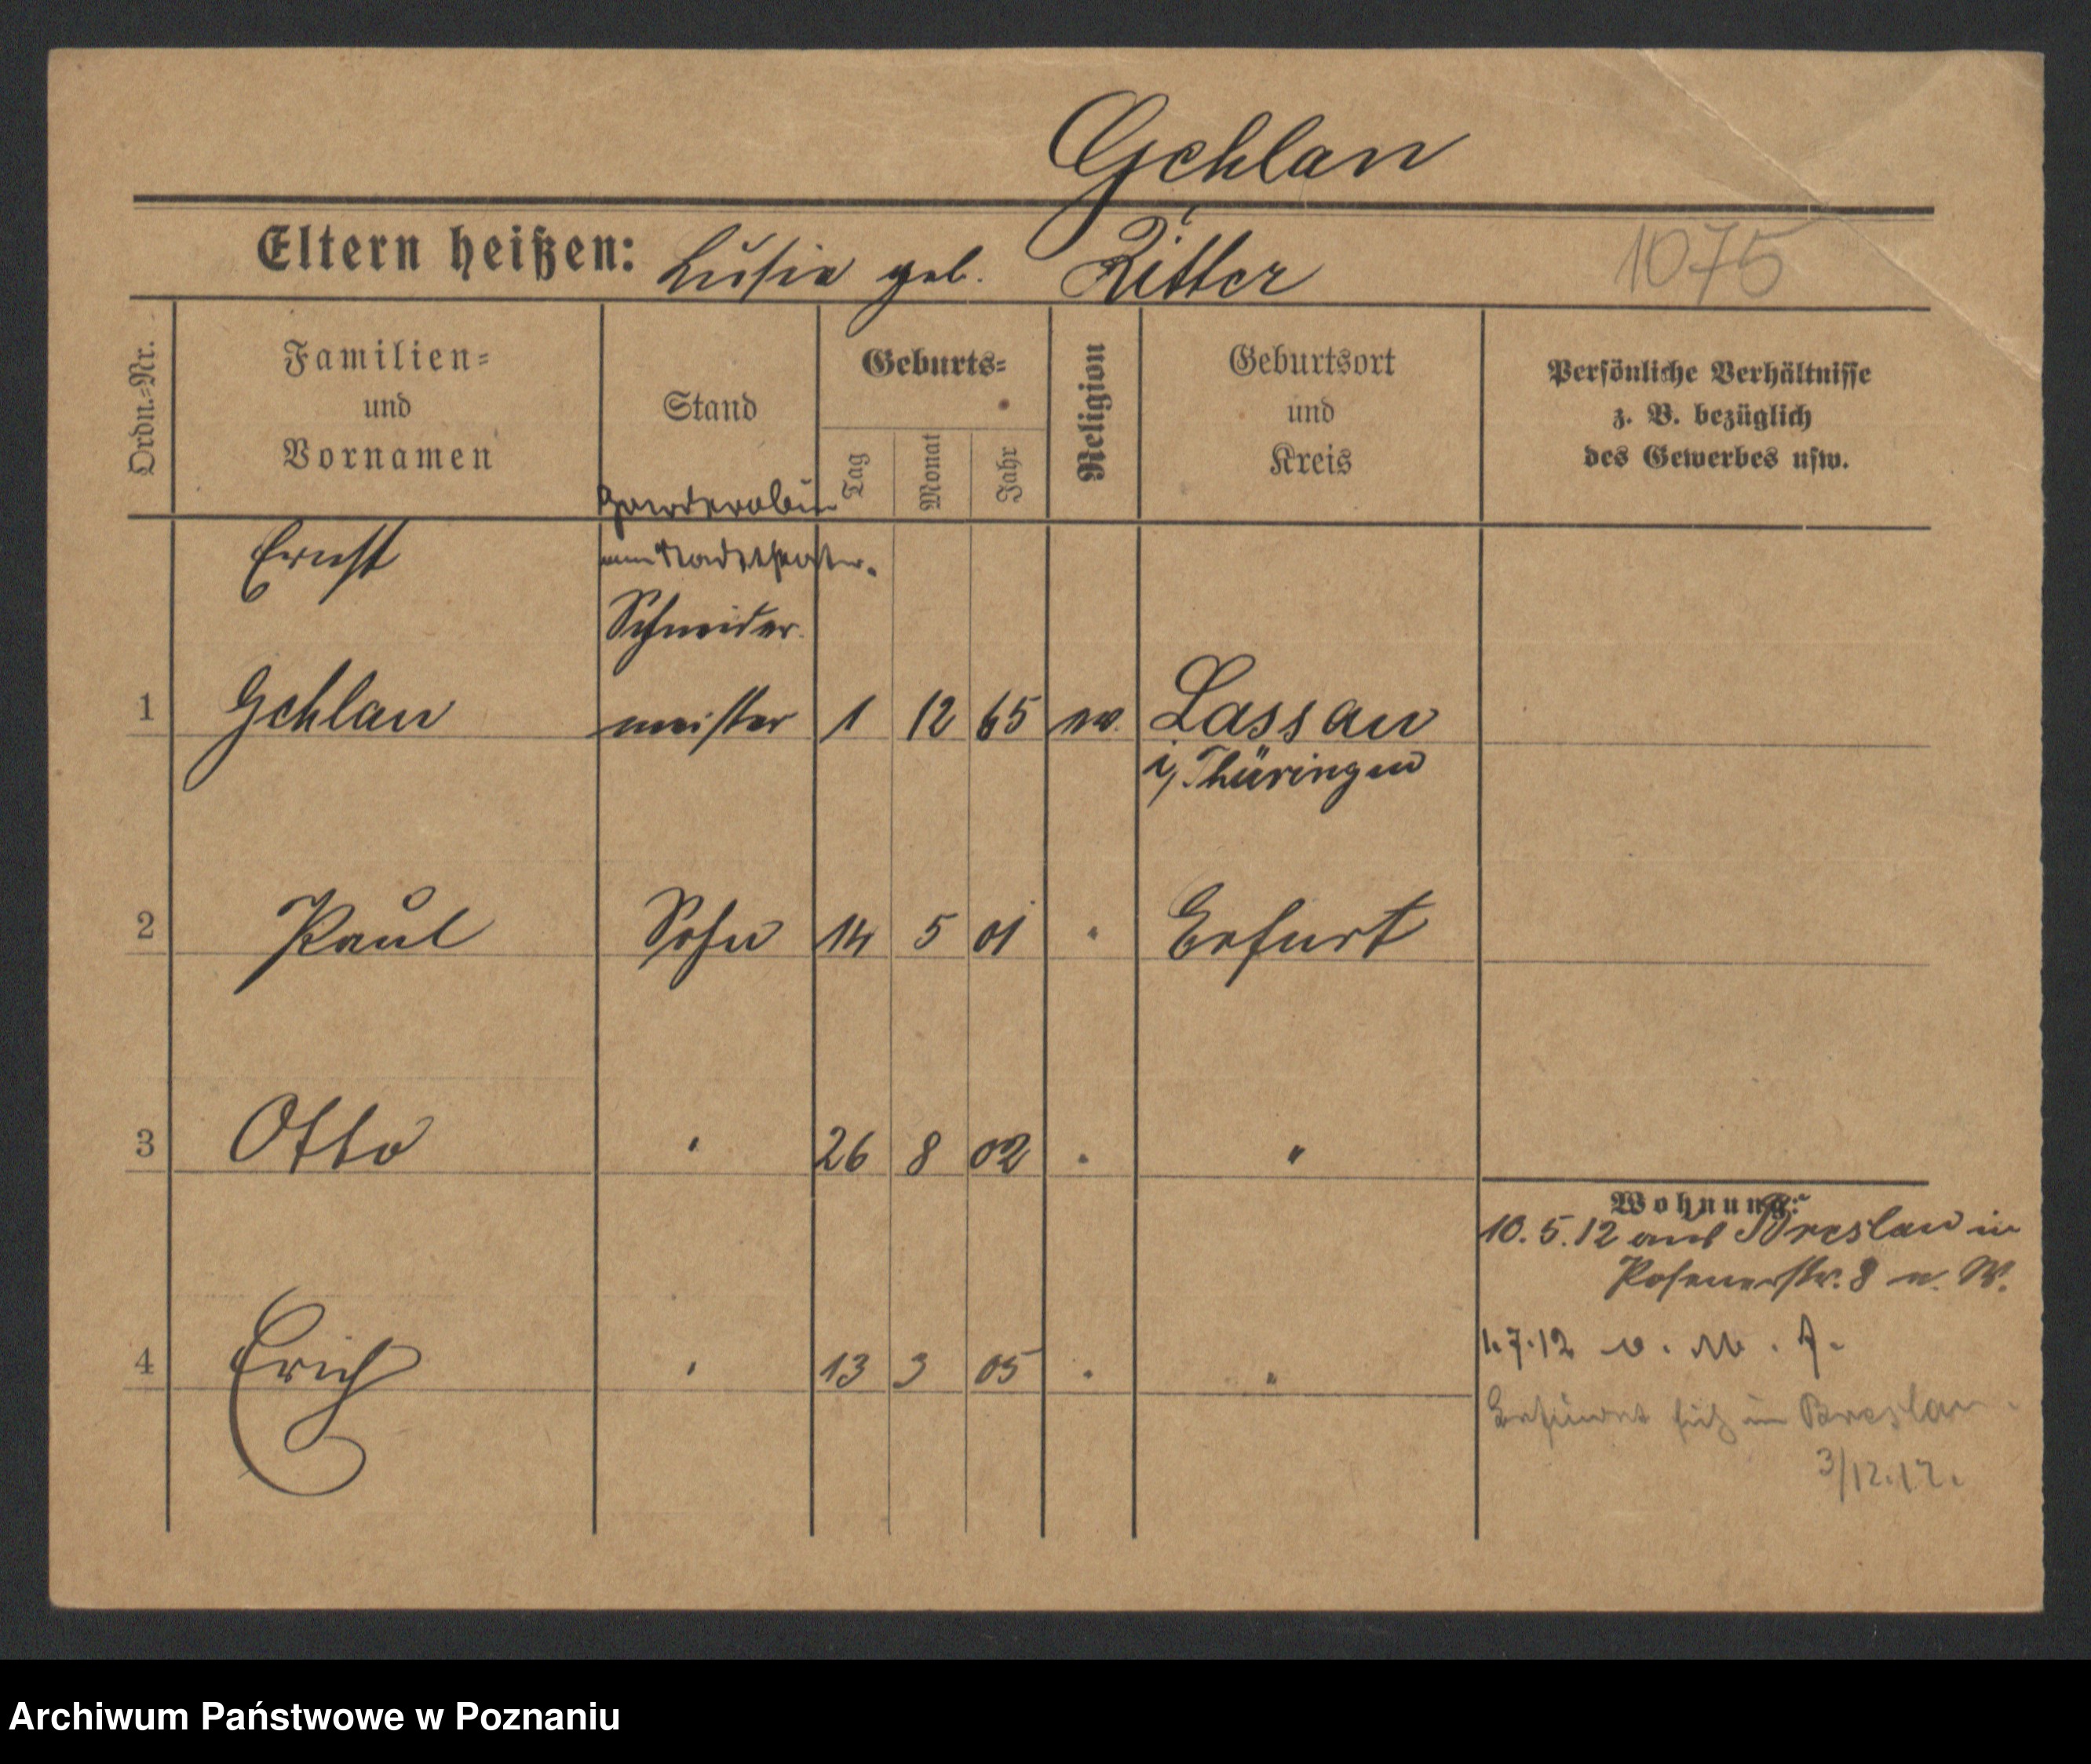 Gehlan
Eltern heißen: Lusie geb. Ritter
1075
Ordn.=Nr.
Familien=
und
Vornamen
Stand
Geburts=
Tag
Monat
Jahr
Religion
Geburtsort
und
Kreis
Persönliche Verhältnisse
z. B. bezüglich
des Gewerbes usw.
Ernst
am Stadttheater.
Schneider
1 Gehlan meister 1 12 65 ev. Lassau
i/Thüringen
2 Paul Sohn 14 5 01 " Erfurt
3 Otto " 26 8 02 " "
Wohnung:
10.5.12 aus Breslau in
Posenerstr. 8 n. W.
4 Erich " 13 3 05 " "
1.7.12 v. M. F.
sich in Breslau.
3/12.12.
Archiwum Państwowe w Poznaniu